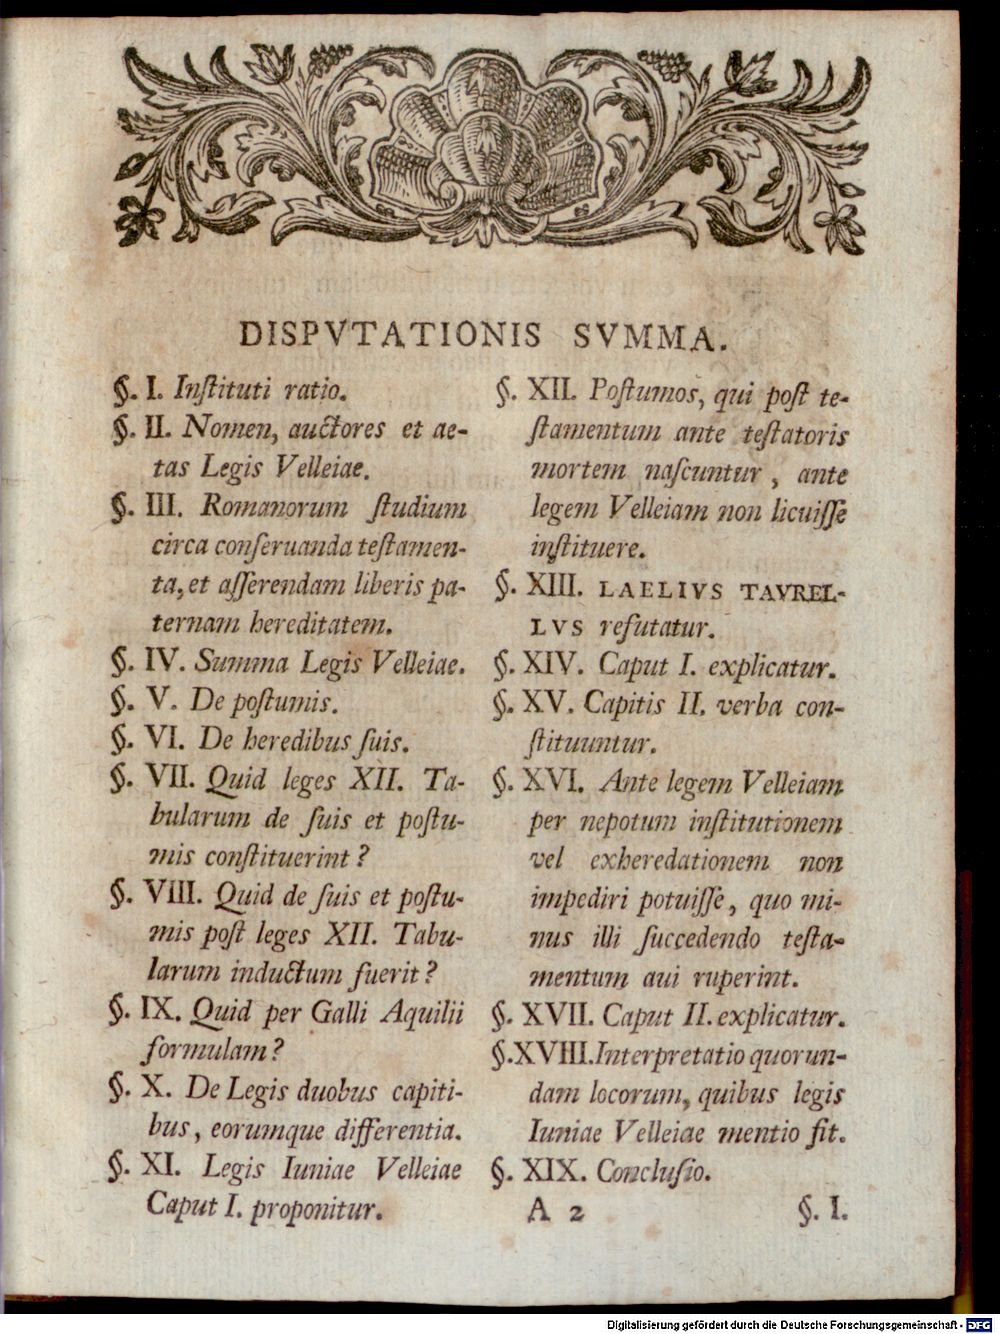 DISPVTATIONIS SVMMA.
§. I. Inſtituti ratio.
§. II. Nomen, auctores et ae-
tas Legis Velleiae.
§. III. Romanorum ſtudium
circa conſeruanda teſtamen-
ta, et aſſerendam liberis pa-
ternam hereditatem.
§. IV. Summa Legis Velleiae.
§. V. De poſtumis.
§. VI. De heredibus ſuis.
§. VII. Quid leges XII. Ta-
bularum de ſuis et poſtu-
mis conſtituerint?
§. VIII. Quid de ſuis et poſtu-
mis poſt leges XII. Tabu-
larum inductum fuerit?
§. IX. Quid per Galli Aquilii
formulam?
§. X. De Legis duobus capiti-
bus, eorumque differentia.
§. XI. Legis Iuniae Velleiae
Caput I. proponitur.
§. XII. Poſtumos, qui poſt te-
ſtamentum ante teſtatoris
mortem naſcuntur, ante
legem Velleiam non licuiſſe
inſtituere.
§. XIII. LAELIVS TAVREL-
LVS refutatur.
§. XIV. Caput I. explicatur.
§. XV. Capitis II. verba con-
ſtituuntur.
§. XVI. Ante legem Velleiam
per nepotum inſtitutionem
vel exheredationem non
impediri potuiſſe, quo mi-
nus illi ſuccedendo teſta-
mentum aui ruperint.
§. XVII. Caput II. explicatur.
§. XVIII. Interpretatio quorun-
dam locorum, quibus legis
Iuniae Velleiae mentio fit.
§. XIX. Concluſio.
A 2 §. I.
Digitalisierung gefördert durch die Deutsche Forschungsgemeinschaft - DFG